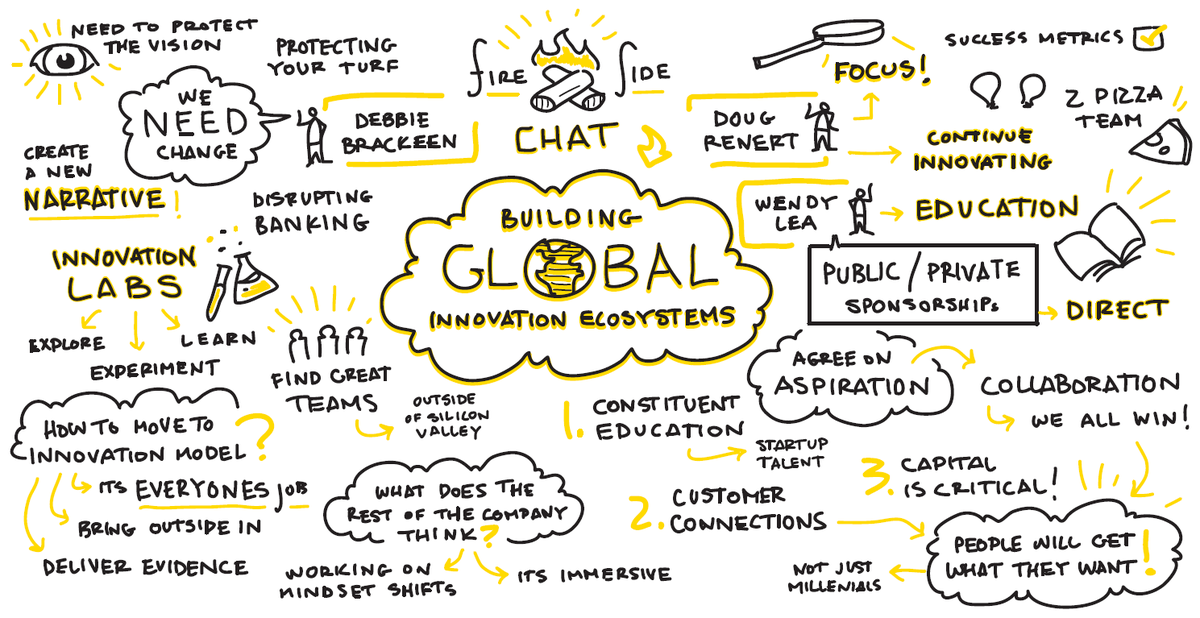 NEED TO PROTECT
THE VISION
PROTECTING
YOUR TURF
WE
NEED
CHANGE
CREATE
A NEW
NARRATIVE!
DEBBIE
BRACKEEN
DISRUPTING
BANKING
FIRE SIDE
CHAT
DOUG
RENERT
FOCUS!
SUCCESS METRICS
2 PIZZA
TEAM
CONTINUE
INNOVATING
WENDY
LEA
EDUCATION
PUBLIC / PRIVATE
SPONSORSHIPS
DIRECT
BUILDING
GLOBAL
INNOVATION ECOSYSTEMS
INNOVATION
LABS
EXPLORE
EXPERIMENT
LEARN
FIND GREAT
TEAMS
OUTSIDE
OF SILICON
VALLEY
HOW TO MOVE TO
INNOVATION MODEL?
ITS EVERYONES JOB
BRING OUTSIDE IN
DELIVER EVIDENCE
WHAT DOES THE
REST OF THE COMPANY
THINK?
WORKING ON
MINDSET SHIFTS
ITS IMMERSIVE
AGREE ON
ASPIRATION
COLLABORATION
WE ALL WIN!
1. CONSTITUENT
EDUCATION
STARTUP
TALENT
2. CUSTOMER
CONNECTIONS
3. CAPITAL
IS CRITICAL!
PEOPLE WILL GET
WHAT THEY WANT!
NOT JUST
MILLENIALS